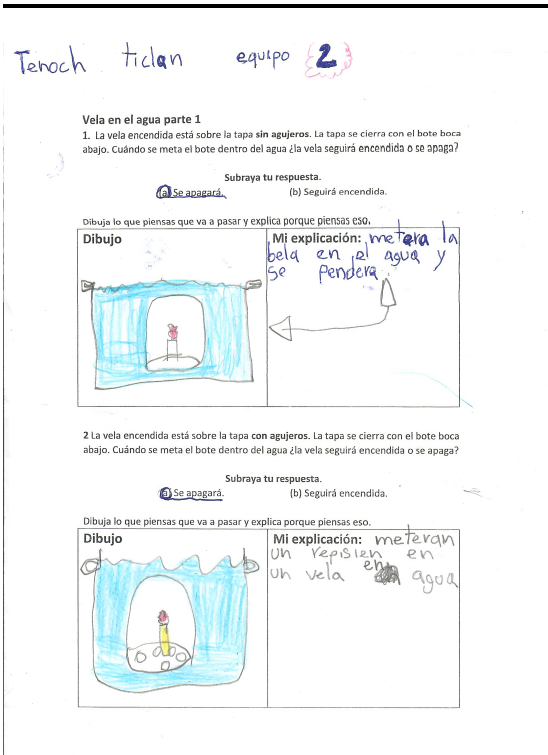 Tenoch ticlan equipo 2
Vela en el agua parte 1
1. La vela encendida está sobre la tapa sin agujeros. La tapa se cierra con el bote boca
abajo. Cuándo se meta el bote dentro del agua ¿la vela seguirá encendida o se apaga?
Subraya tu respuesta.
(a) Se apagará. (b) Seguirá encendida.
Dibuja lo que piensas que va a pasar y explica porque piensas eso.
Dibujo
Mi explicación: metera la
bela en el agua y
se pendera
2 La vela encendida está sobre la tapa con agujeros. La tapa se cierra con el bote boca
abajo. Cuándo se meta el bote dentro del agua ¿la vela seguirá encendida o se apaga?
Subraya tu respuesta.
(a) Se apagará. (b) Seguirá encendida.
Dibuja lo que piensas que va a pasar y explica porque piensas eso.
Dibujo
Mi explicación: meteran
un repisien en
un vela en agua